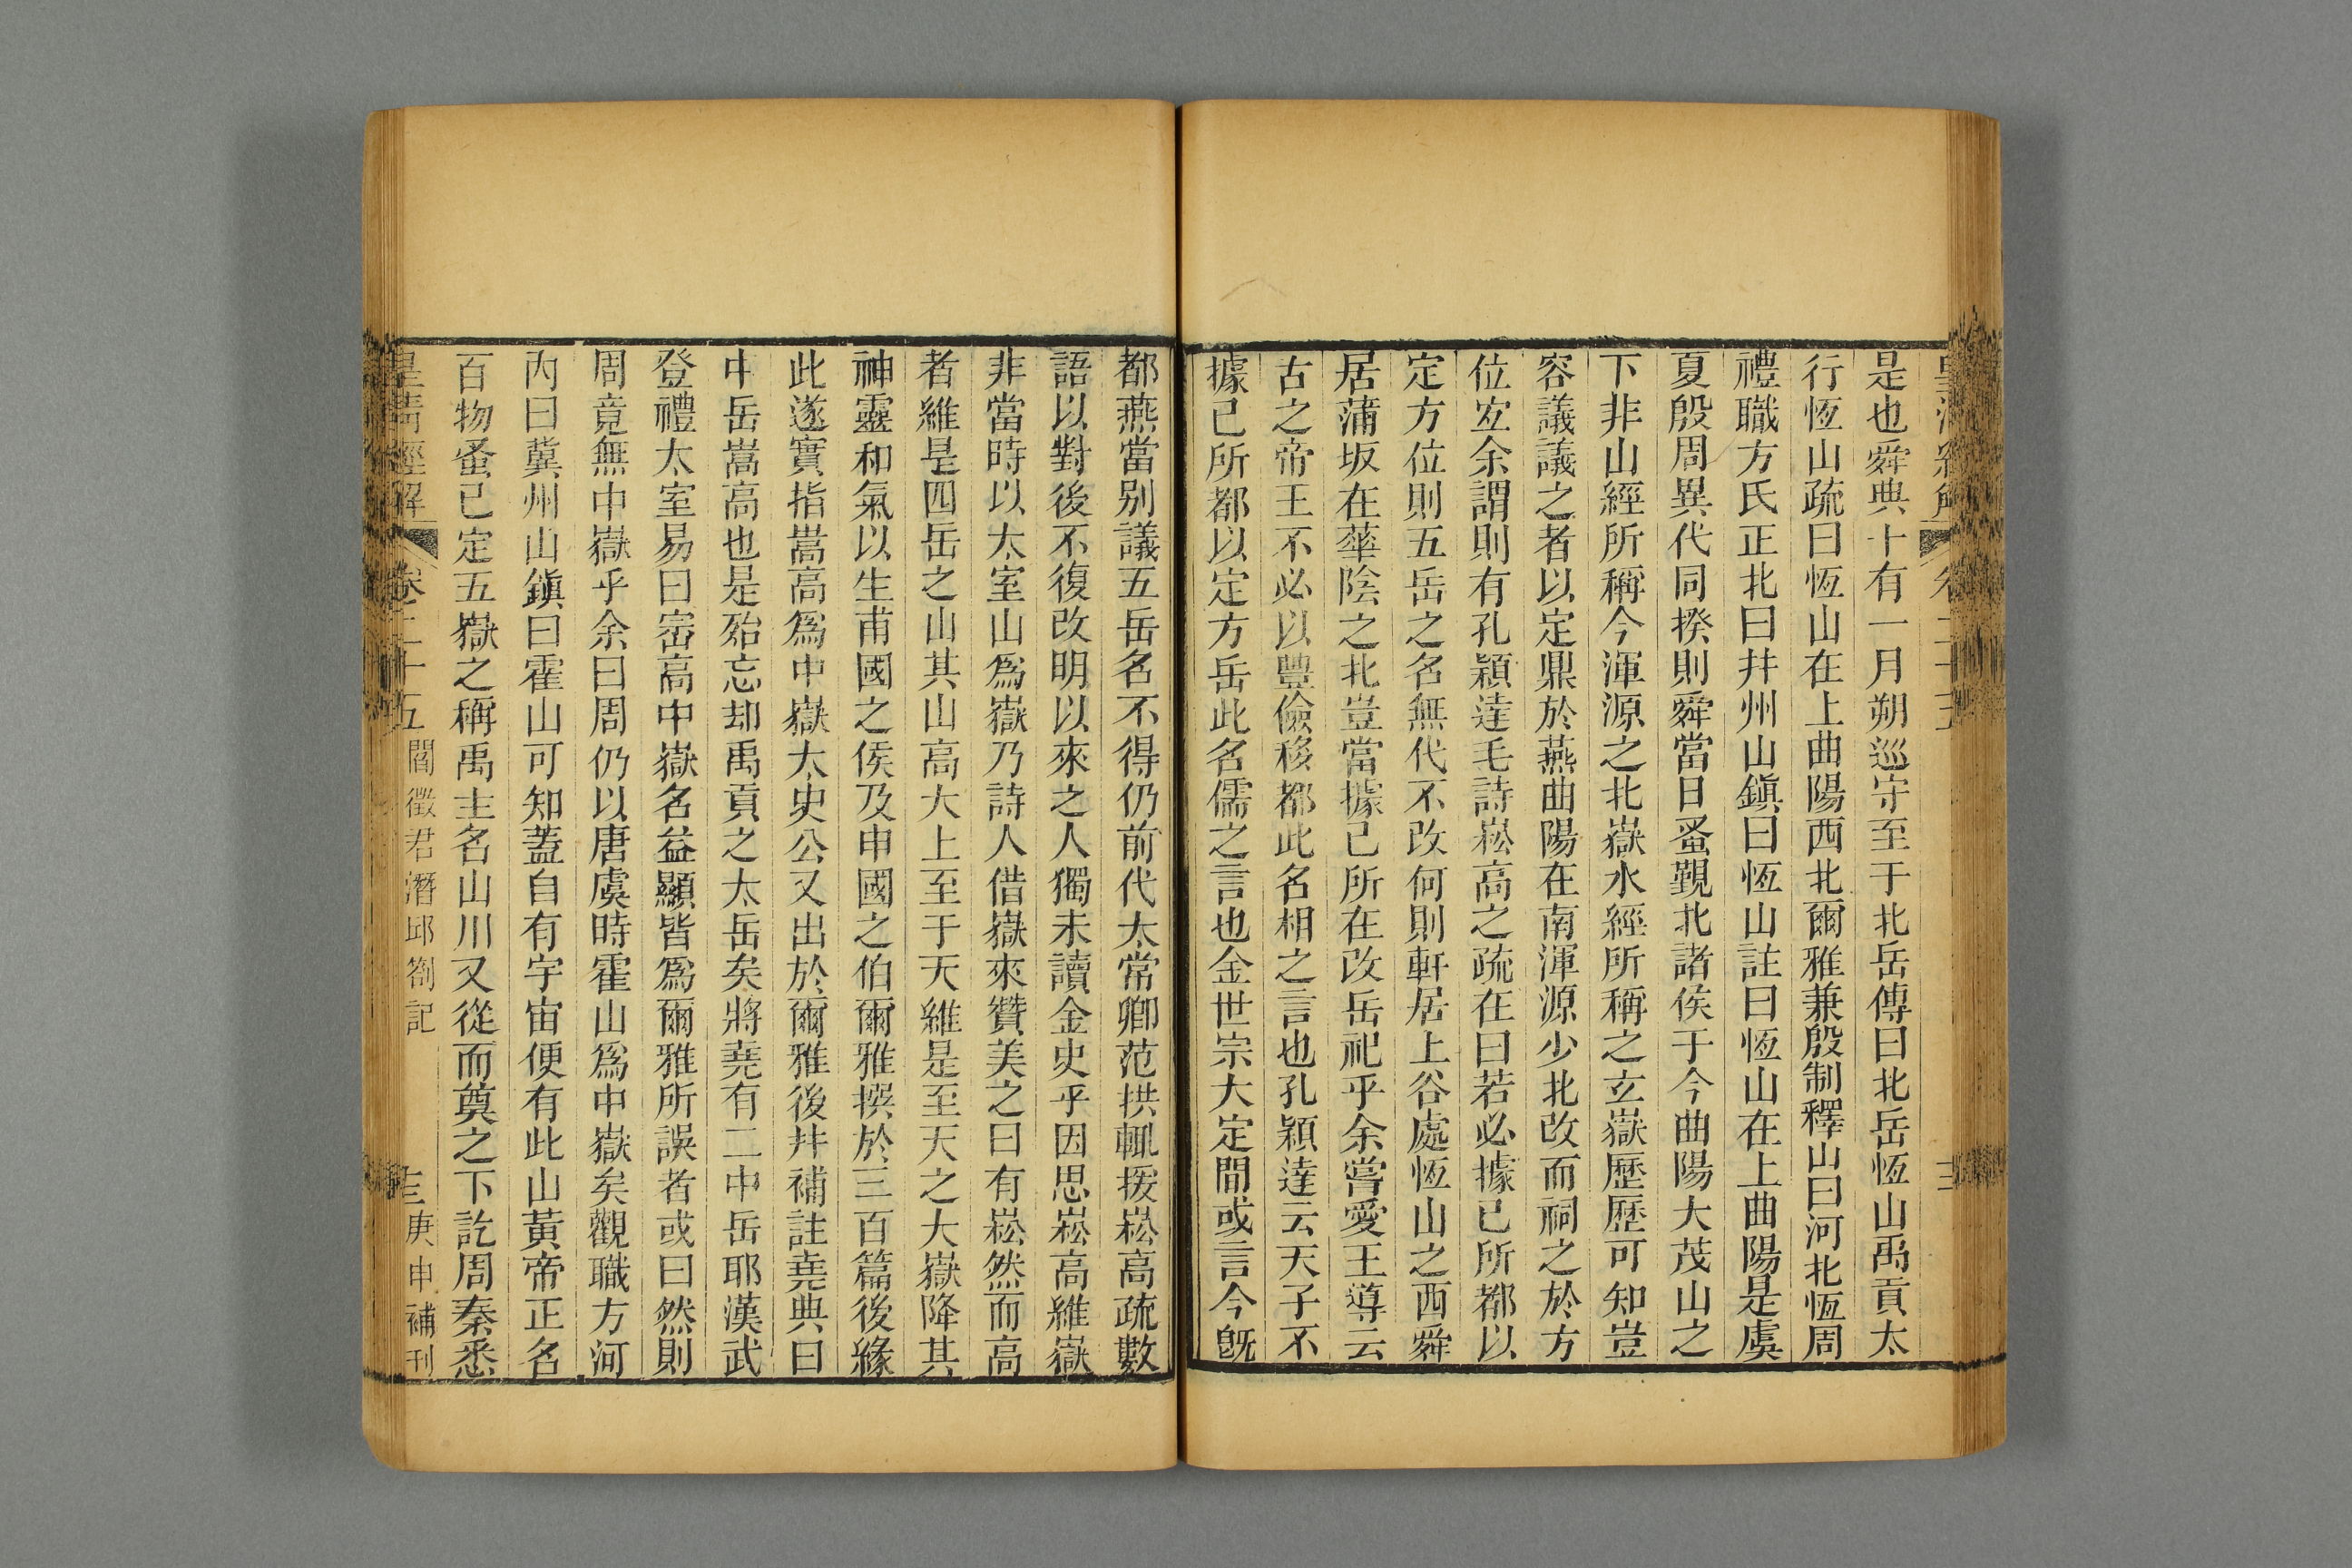 是也舜典十有一月朔巡守至于北岳傳曰北岳恆山禹貢太
行恆山疏曰恆山在上曲陽西北爾雅兼殷制釋山曰河北恆周
禮職方氏正北曰幷州山鎭曰恆山註曰恆山在上曲陽是虞
夏殷周異代同揆則舜當日蚤覲北諸侯于今曲陽大茂山之
下非山經所稱今渾源之北嶽水經所稱之玄嶽歷歷可知豈
容議議之者以定鼎於燕曲陽在南渾源少北改而祠之於方
位宐余謂則有孔穎達毛詩崧高之疏在曰若必據已所都以
定方位則五岳之名無代不改何則軒居上谷處恆山之西舜
居蒲坂在華陰之北豈當據已所在改岳祀乎余嘗愛王導云
古之帝王不必以豐儉移都此名相之言也孔穎達云天子不
據已所都以定方岳此名儒之言也金世宗大定間或言今旣
都燕當别議五岳名不得仍前代太常卿范拱輒援崧高疏數
語以對後不復改明以來之人獨未讀金史乎因思崧高維嶽
非當時以太室山爲嶽乃詩人借嶽來贊美之曰有崧然而高
者維是四岳之山其山高大上至于天維是至天之大嶽降其
神靈和氣以生甫國之侯及申國之伯爾雅撰於三百篇後緣
此遂實指嵩高爲中嶽太史公又出於爾雅後幷補註堯典曰
中岳嵩高也是殆忘却禹貢之太岳矣將堯有二中岳耶漢武
登禮太室易曰崈高中嶽名益顯皆爲爾雅所誤者或曰然則
周竟無中嶽乎余曰周仍以唐虞時霍山爲中嶽矣觀職方河
内曰冀州山鎭曰霍山可知蓋自有宇宙便有此山黃帝正名
百物蚤已定五嶽之稱禹主名山川又從而奠之下訖周秦悉
皇淸經解 卷二十五 閻徵君潛邱劄記 三 庚申補刊